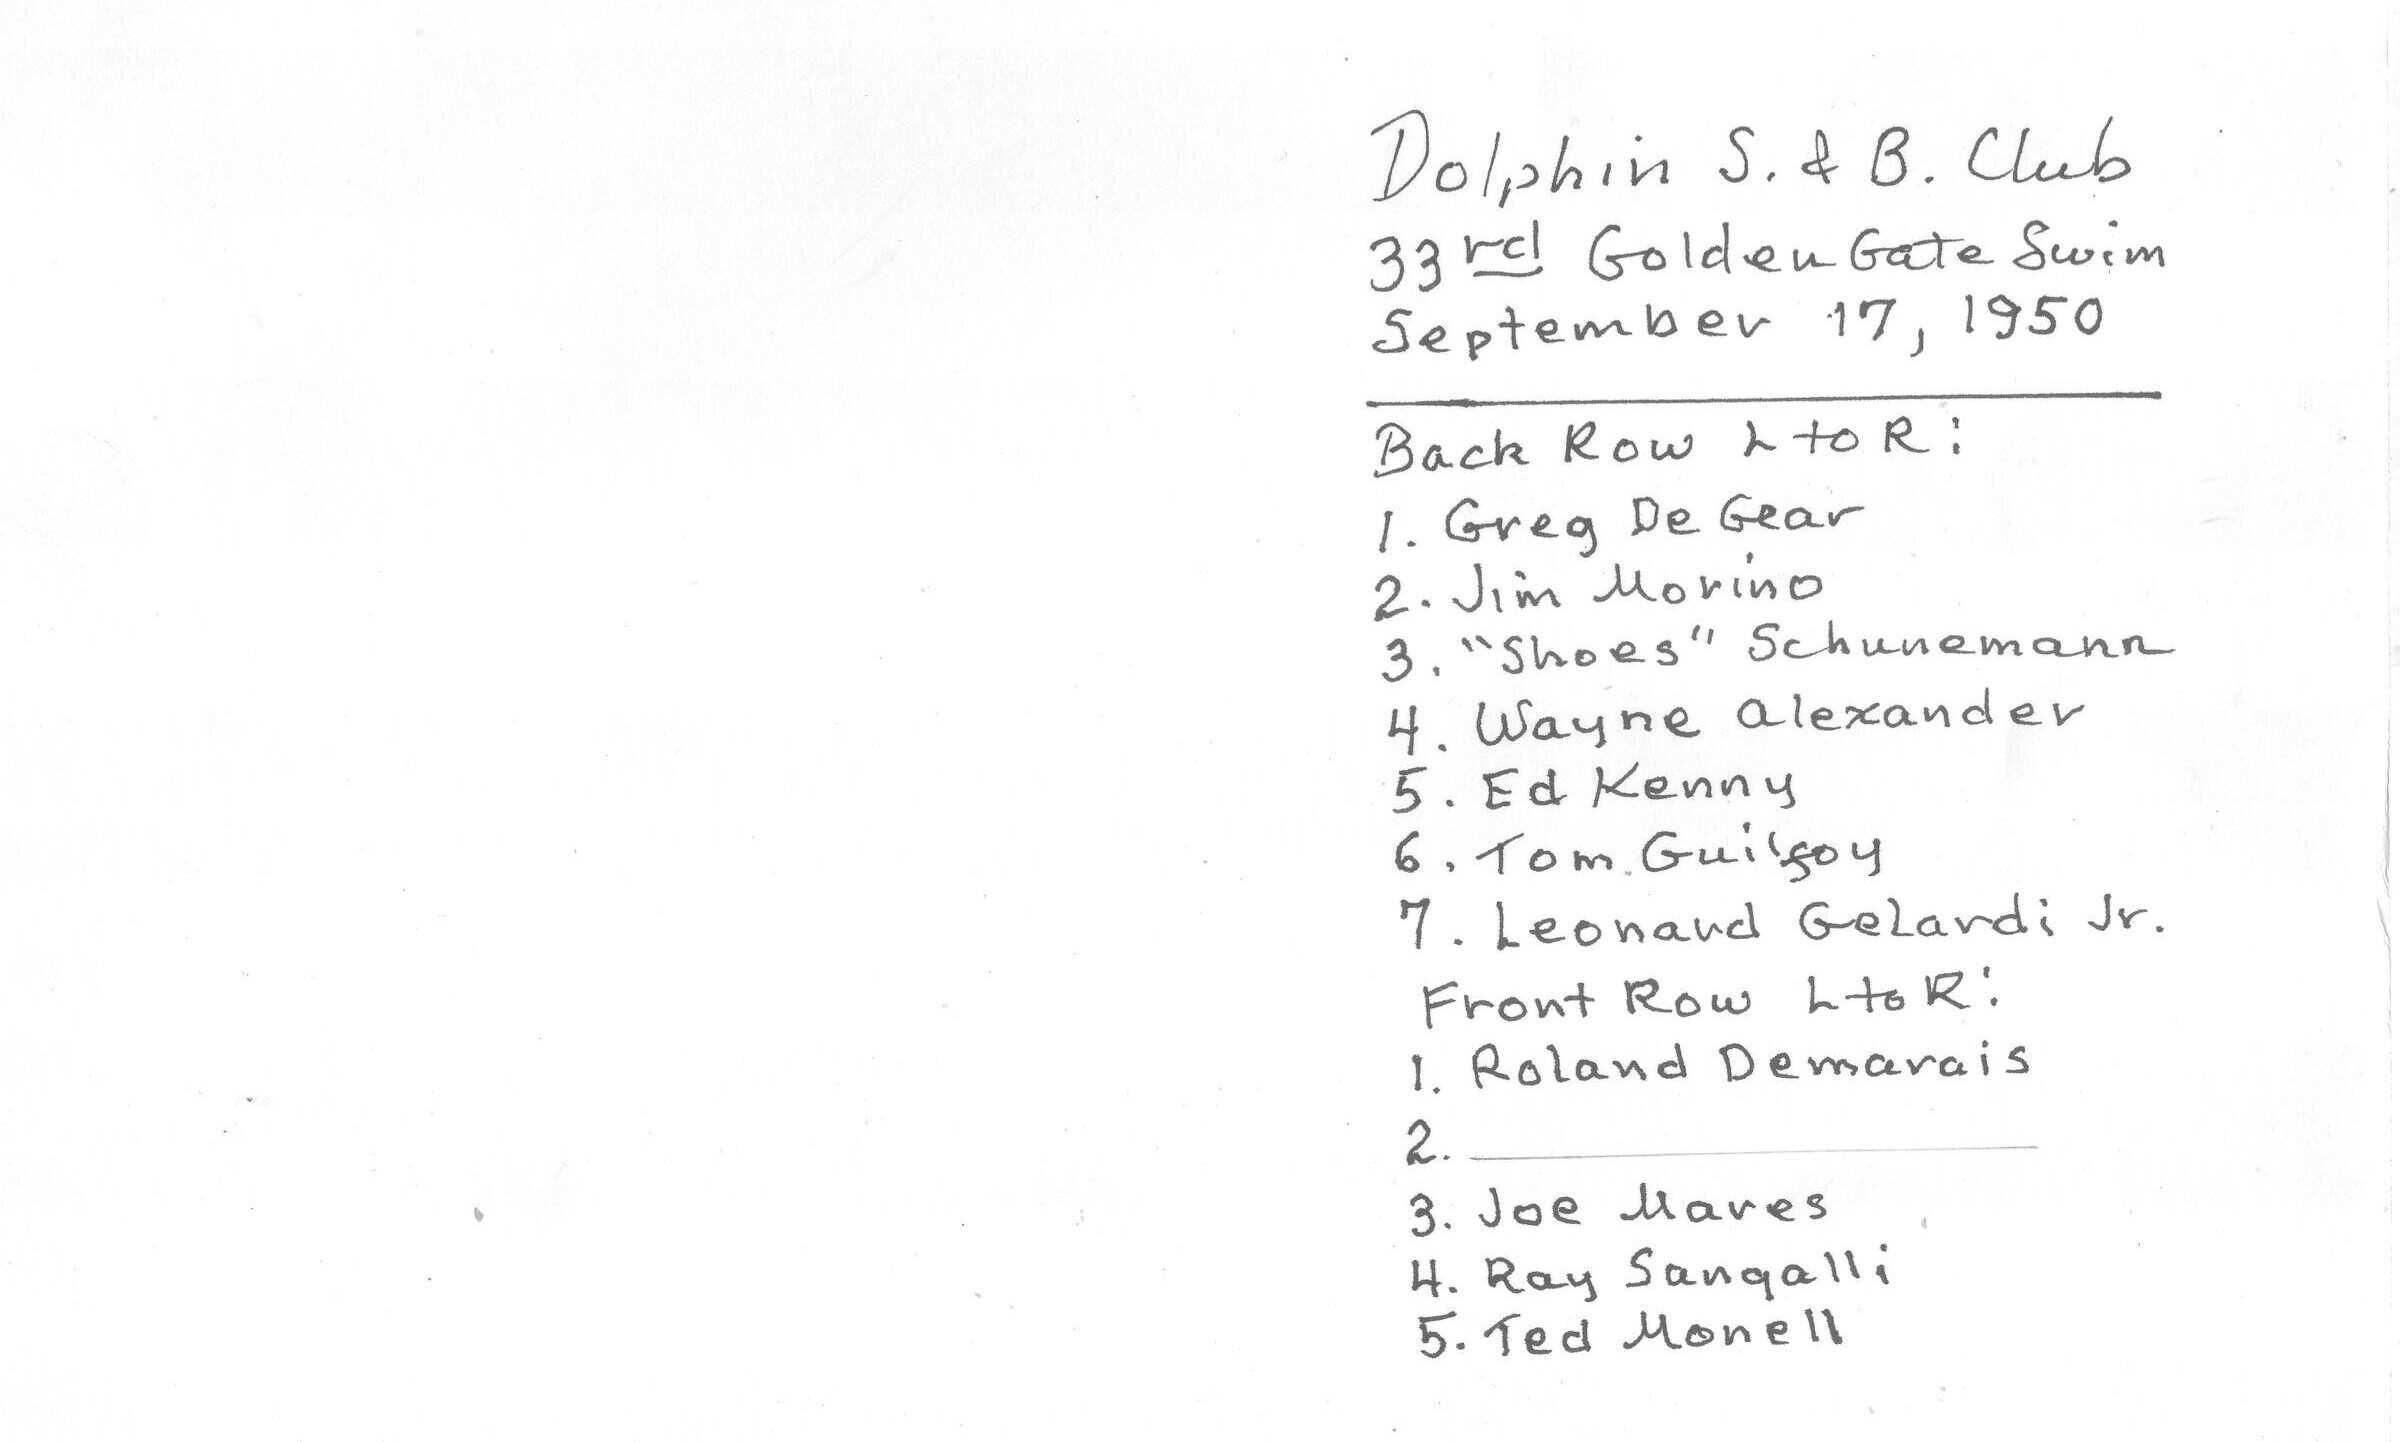 Dolphin S. & B. Club
33rd Golden Gate Swim
September 17, 1950
Back Row L to R:
1. Greg De Gear
2. Jim Morino
3. "Shoes" Schunemann
4. Wayne Alexander
5. Ed Kenny
6. Tom Guilfoy
7. Leonard Gelardi Jr.
Front Row L to R:
1. Roland Demarais
2.
3. Joe Mares
4. Ray Sangalli
5. Ted Monell